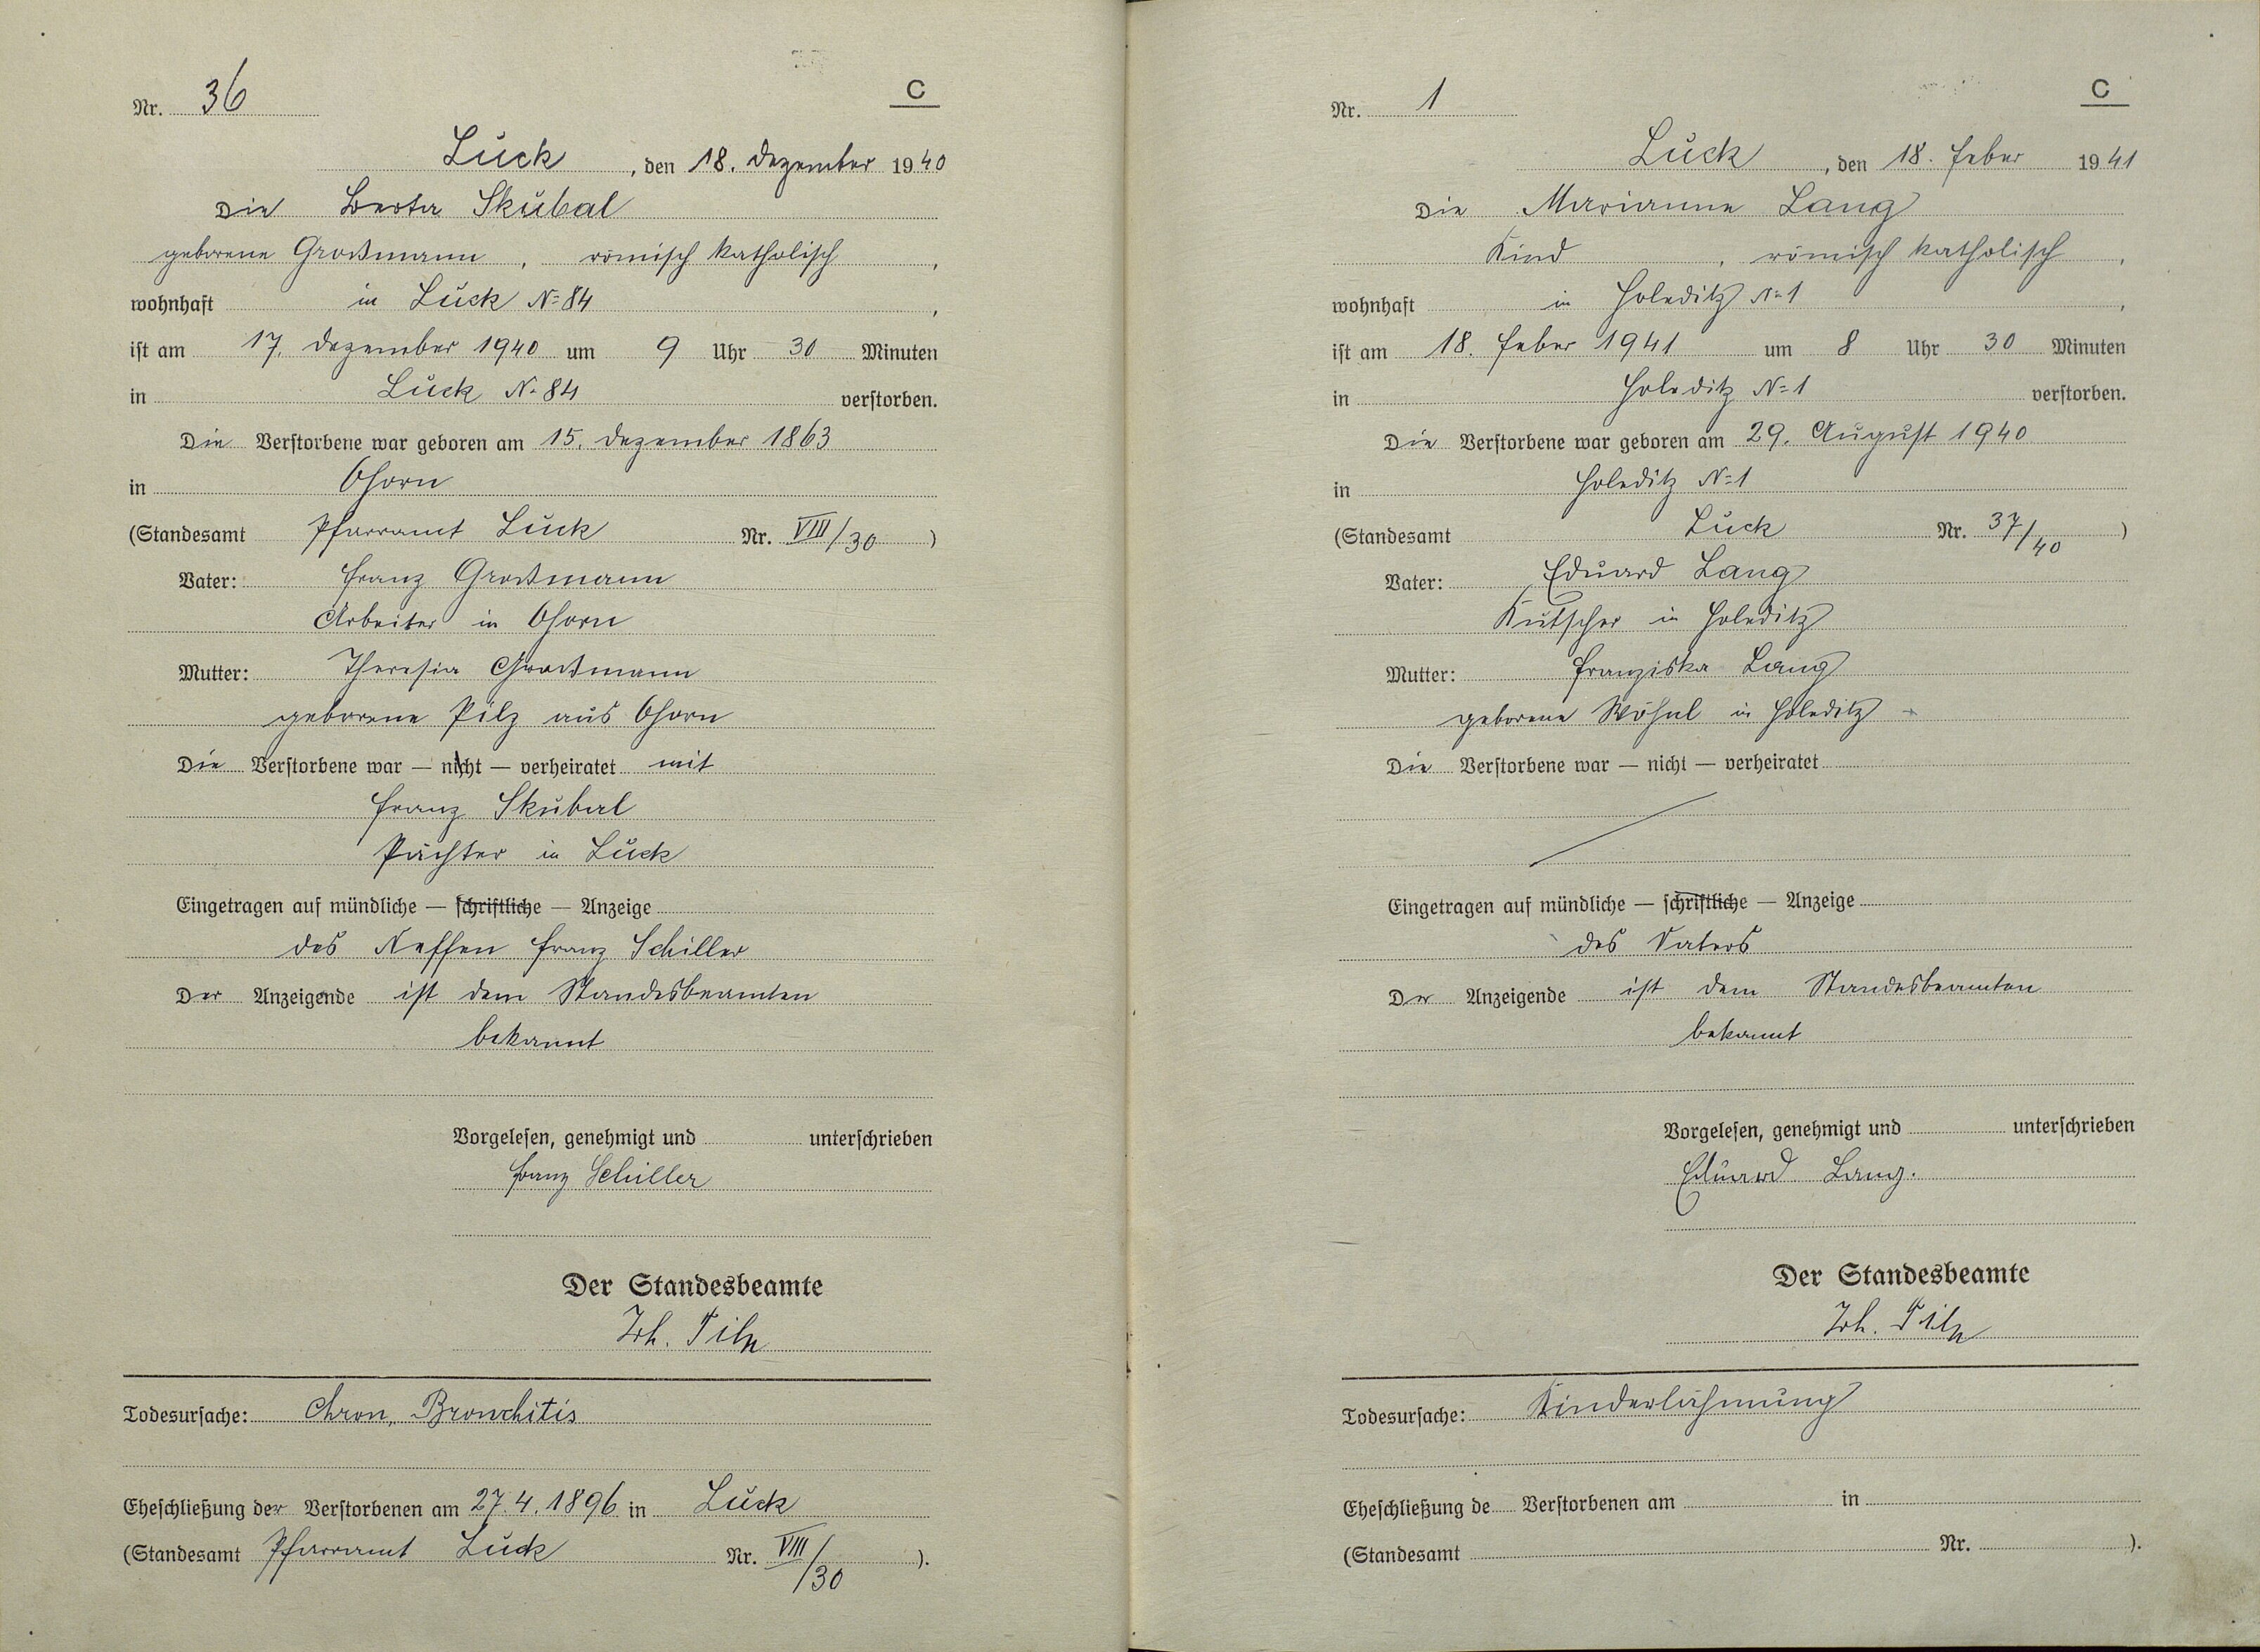 Nr. 36
C
Luck, den 18. Dezember 1940
Die Berta Skubal
geborene Großmann, römisch katholisch,
wohnhaft in Luck N=84,
ist am 17. Dezember 1940 um 9 Uhr 30 Minuten
in Luck N=84 verstorben.
Die Verstorbene war geboren am 15. Dezember 1863
in Ohorn
(Standesamt Pfarramt Luck Nr. VIII/30)
Vater: Franz Großmann
Arbeiter in Ohorn
Mutter: Theresia Großmann
geborene Pilz aus Ohorn
Die Verstorbene war — nicht — verheiratet mit
Franz Skubal
Pächter in Luck
Eingetragen auf mündliche — schriftliche — Anzeige
des Neffen Franz Schiller
Der Anzeigende ist dem Standesbeamten
bekannt
Vorgelesen, genehmigt und unterschrieben
Franz Schiller
Der Standesbeamte
Todesursache: Chron. Bronchitis
Eheschließung der Verstorbenen am 27.4.1896 in Luck
(Standesamt Pfarramt Luck Nr. VIII/30).
Nr. 1
C
Luck, den 18. Feber 1941
Die Marianne Lang
Kind, römisch katholisch,
wohnhaft in Holeditz N=1,
ist am 18. Feber 1941 um 8 Uhr 30 Minuten
in Holeditz N=1 verstorben.
Die Verstorbene war geboren am 29. August 1940
in Holeditz N=1
(Standesamt Luck Nr. 37/40)
Vater: Eduard Lang
Kutscher in Holeditz
Mutter: Franziska Lang
geborene Wöhnl in Holeditz
Die Verstorbene war — nicht — verheiratet
Eingetragen auf mündliche — schriftliche — Anzeige
des Vaters
Der Anzeigende ist dem Standesbeamten
bekannt
Vorgelesen, genehmigt und unterschrieben
Eduard Lang.
Der Standesbeamte
Todesursache: Kinderlähmung
Eheschließung de Verstorbenen am in
(Standesamt Nr. ).